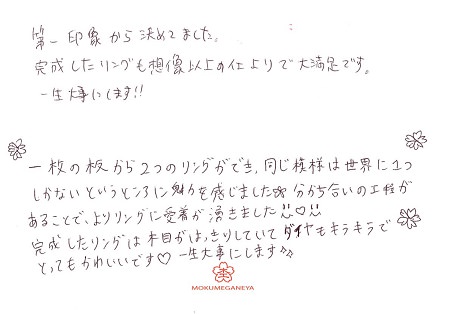 第一印象から決めてました。
完成したリングも想像以上の仕上りで大満足です。
一生大事にします!!
一枚の板から2つのリングができ、同じ模様は世界に1つ
しかないというところに魅力を感じました 分かち合いの工程が
あることで、よりリングに愛着が湧きました♡
完成したリングは木目がはっきりしていてダイヤもキラキラで
とってもかわいいです♡ 一生大事にします
MOKUMEGANEYA